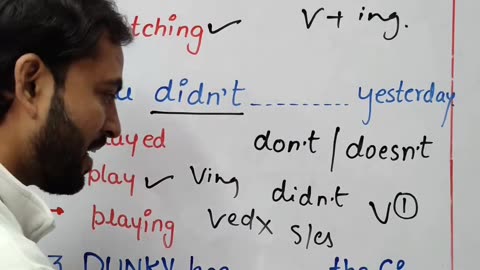 tching✓ V+ ing.
didn't yesterday
ayed don't / doesn't
play ✓ Ving didn't V①
→ playing Vedx s/es
3. DUNKY the